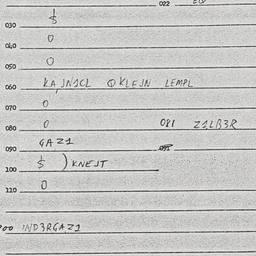 022 EQ
030
040 0
050 0
060 KA,JN1CL QKLEJN LEMPL
070 0
080 0 081 Z1LB3R
090 GAZ1
100 ) KNEJT
110 0
IND3RGAZ1